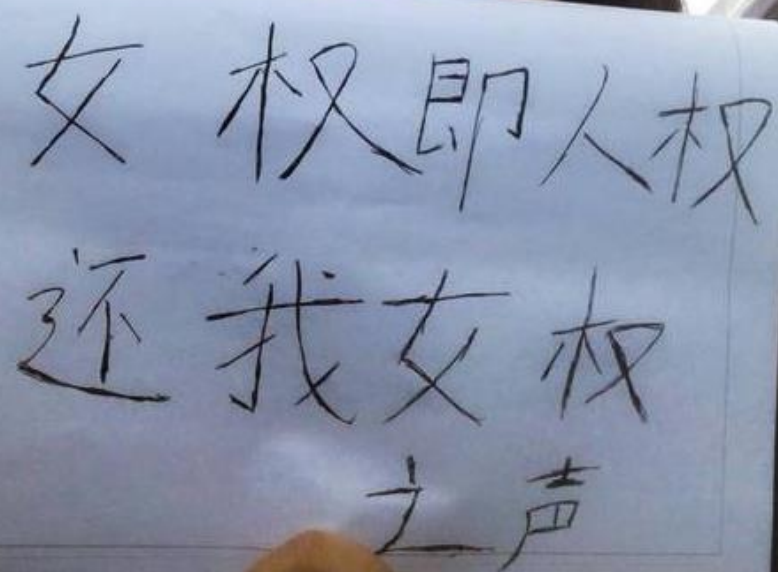 女权即人权
还我女权
之声